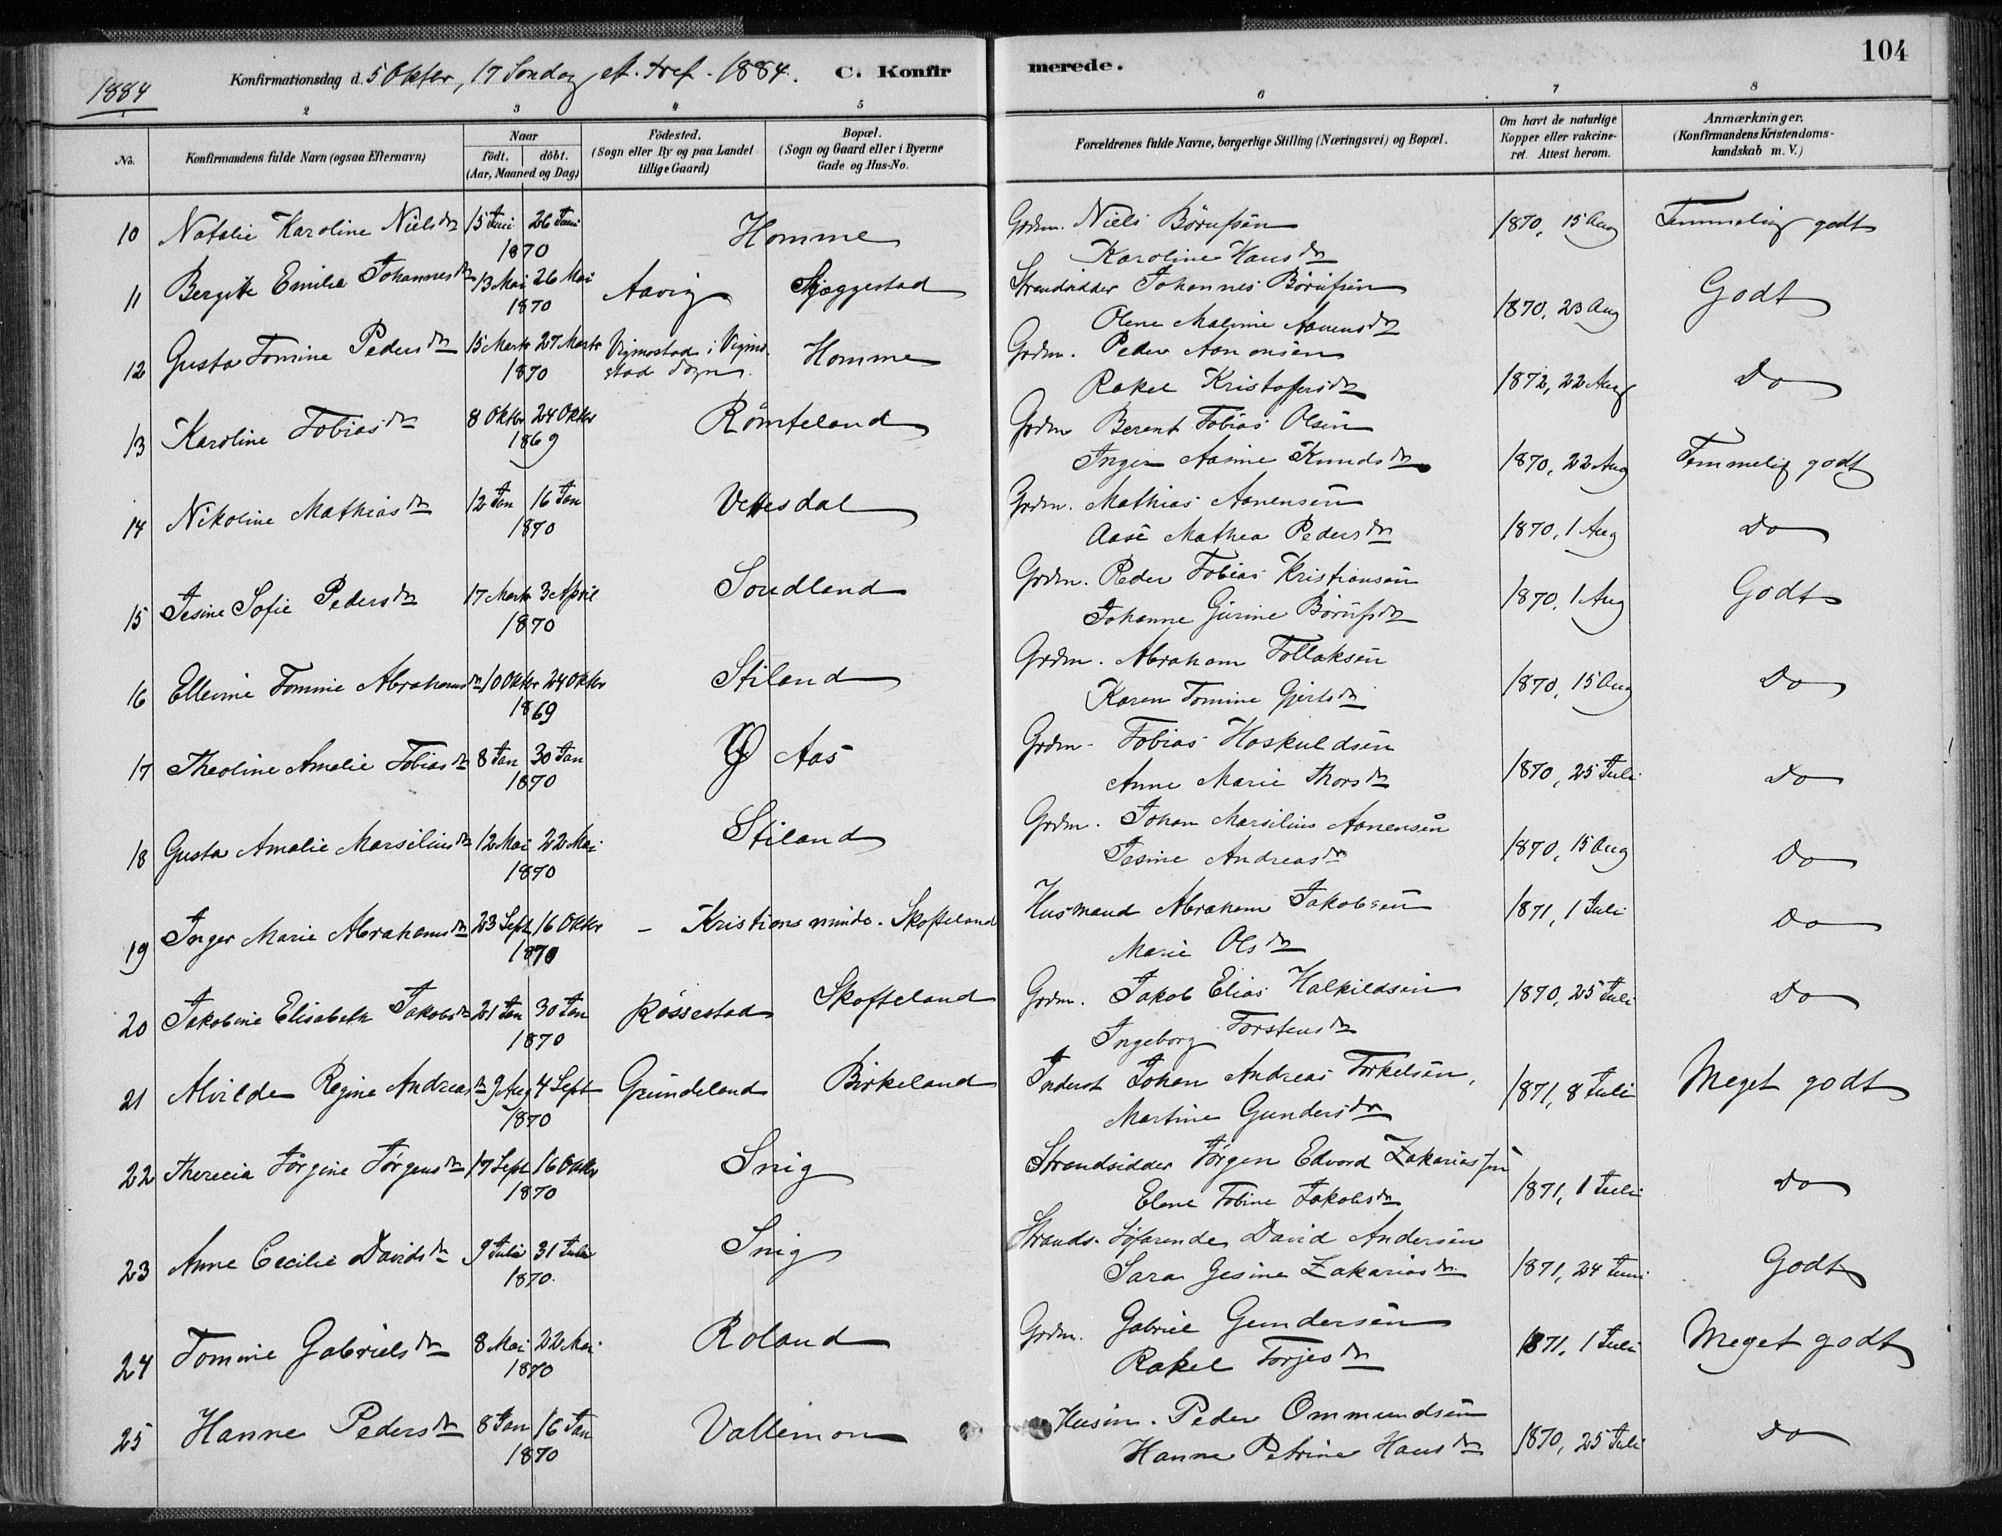 1884 Konfirmationsdag d. 5 Oktbr, 17 Søndag eft. Tref. 1884. C. Konfirmerede. 104
2 3 4 5 6 7 8
No. Konfirmandens fulde Navn (ogsaa Efternavn) Naar født. døbt. (Aar, Maaned og Dag) Fødested. (Sogn eller By og paa Landet tillige Gaard) Bopæl. (Sogn og Gaard eller i Byerne Gade og Hus-No. Forældrenes fulde Navne, borgerlige Stilling (Næringsvei) og Bopæl. Om havt de naturlige Kopper eller vakcineret. Attest herom. Anmærkninger. (Konfirmandens Kristendomskundskab m. V.)
10 Natalie Karoline Nielsdr 15 Juni 26 Juni 1870 Homme Grdm. Niels Børufsen 1870, 15 Aug Temmelig godt
Karoline Hansdr
11 Bergitte Emilie Johannesdr 13 Mai 26 Mai 1870 Aavig Skjeggestad Strandsidder Johannes Børufsen 1870, 23 Aug Godt
Olene Malinie Aanensdr
12 Gusta Tomine Pedersdr 15 Marts 27 Marts 1870 Vigmostad i Vigmostad Sogn Homme Grdm. Peder Aanonsen 1872, 22 Aug Do
Rakel Kristofersdr
13 Karoline Tobiasdr 8 Oktbr 24 Oktbr 1869 Rømteland Grdm Berent Tobias Olsen 1870, 22 Aug Temmelig godt
Inger Aasine Knudsdr
14 Nikoline Mathiasdr 12 Jan 16 Jan 1870 Vettesdal Grdm. Mathias Aanensen 1870, 1 Aug Do
Aase Mathea Pedersdr
15 Jesine Sofie Pedersdr 17 Marts 3 April 1870 Soudland Grdm. Peder Tobias Kristiansen 1870, 1 Aug Godt
Johanne Gurine Børufsdr
16 Ellevine Tomine Abrahamsdr 10 Oktbr 24 Oktbr 1869 Stiland Grdm. Abraham Tollaksen 1870, 15 Aug Do
Karen Tomine Gjertsdr
17 Theoline Amalie Tobiasdr 8 Jan 30 Jan 1870 Ø Aas Grdm. Tobias Haskuldsen 1870, 25 Juli Do
Anne Marie Thorsdr
18 Gusta Amalie Marsiliusdr 12 Mai 22 Mai 1870 Stiland Grdm. Johan Marsilius Aanensen 1870, 15 Aug Do
Jesine Andreasdr
19 Inger Marie Abrahamsdr 23 Sept 16 Oktbr 1870 – Kristiansminde. Skofteland Husmand Abraham Jakobsen 1871, 1 Juli Do
Marie Olsdr
20 Jakobine Elisabeth Jakobsdr 21 Jan 30 Jan 1870 Røssestad Skofteland Grdm. Jakob Elias Halkildsen 1870, 25 Juli Do
Ingeborg Torstensdr
21 Alvilde Regine Andreasdr 9 Aug 4 Sept 1870 Grundeland Birkeland Inderst Johan Andreas Torkelsen, 1871, 8 Juli Meget godt
Martine Gundersdr
22 Therecia Jørgine Jørgensdr 17 Sept 16 Oktbr 1870 Snig Strandsidder Jørgen Edvard Zakariassen 1871, 1 Juli Do
Elene Tobine Jakobsdr
23 Anne Cecilie Davidsdr 9 Juli 31 Juli 1870. Snig Strands. Søfarende David Andersen 1871, 24 Juni Godt
Sara Gesine Zakariasdr
24 Tomine Gabrielsdr 8 Mai 22 Mai 1870 Roland Grdm. Gabriel Gundersen 1871, 1 Juli Meget godt
Rakel Torjesdr
25 Hanne Pedersdr 8 Jan 16 Jan 1870 Vallemon Husm. Peder Ommundsen 1870, 25 Juli Do
Hanne Petrine Hansdr